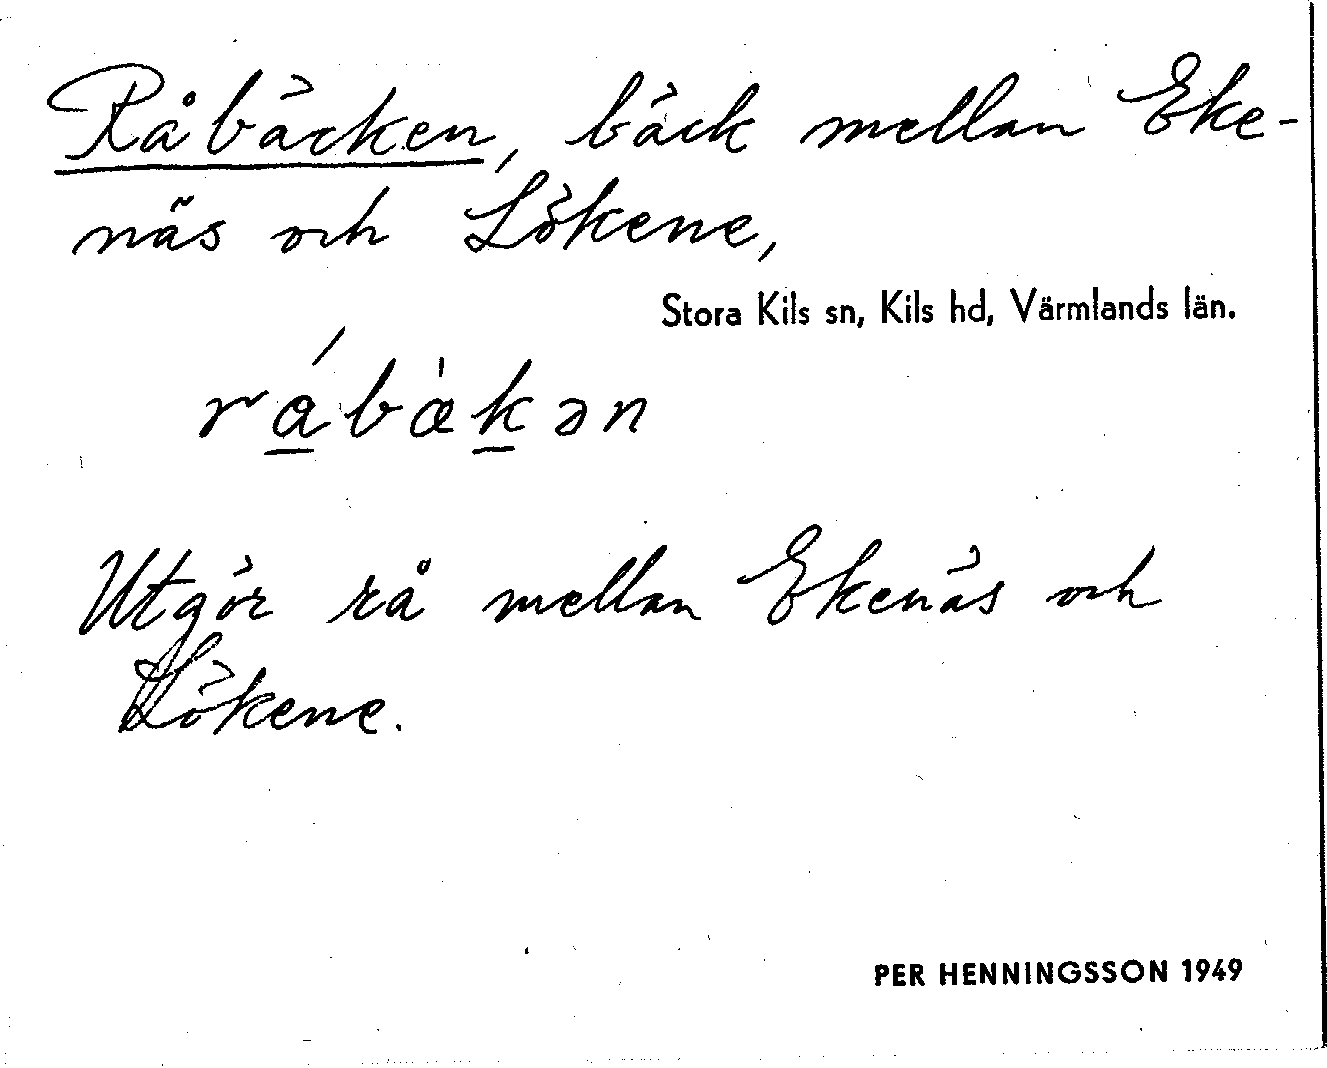 Råbäcken, bäck mellan Eke-
näs och Lökene,
Stora Kils sn, Kils hd, Värmlands län.
rábæ̀kən
Utgör rå mellan Ekenäs och
Lökene.
PER HENNINGSSON 1949